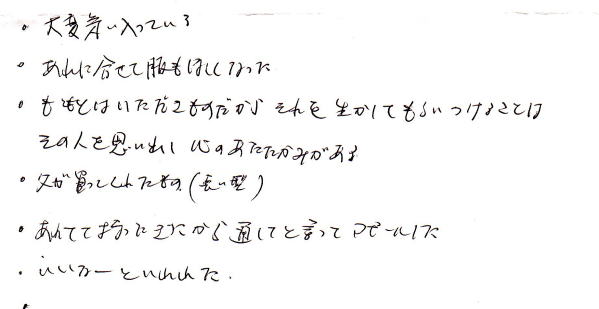 ・大変気に入っている
・あれに合せて服もほしくなった
・もともとはいただきものだから それを 生かしてもらいつけることは
その人を思い出し 心のあたたかみがある
・父が買ってくれたもの(長い型)
・あわてて持ってきたから 通してと言って アピールした
・いいなーといわれた.